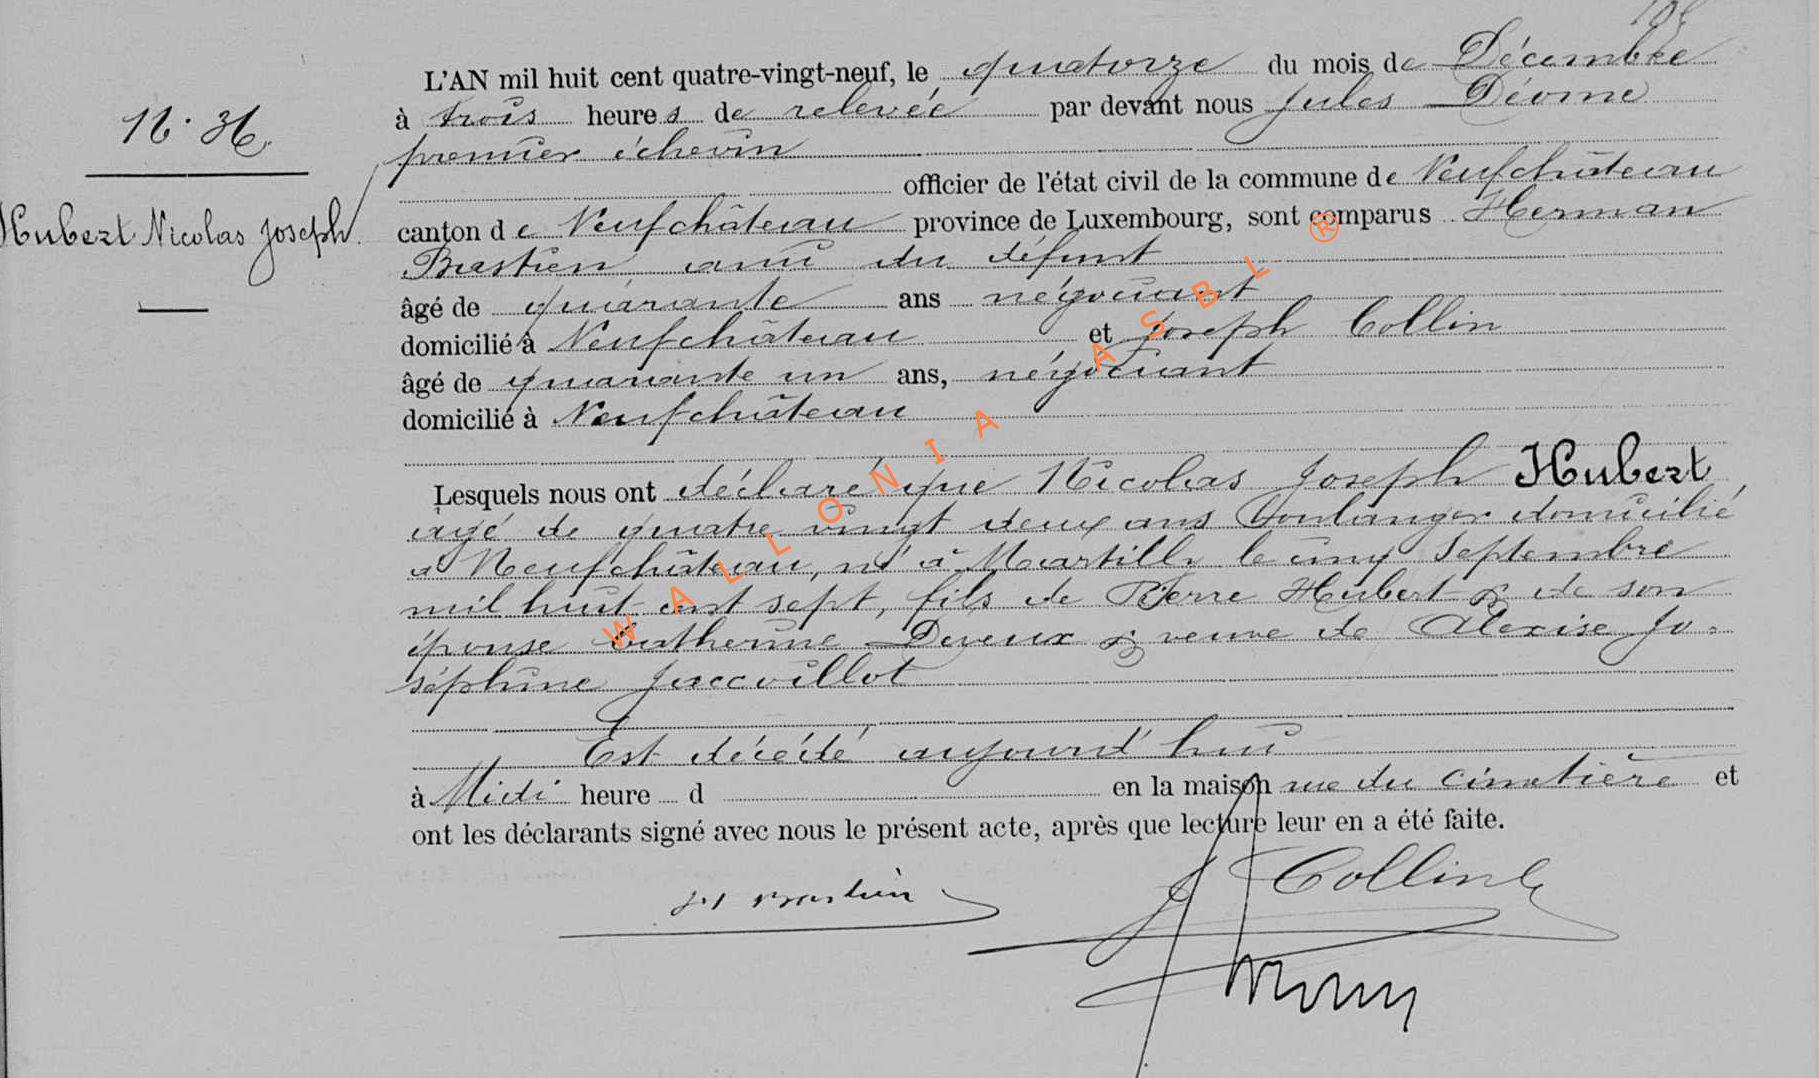 N. 36.
Hubert Nicolas Joseph.
L'AN mil huit cent quatre-vingt-neuf, le quatorze du mois de Décembre
à trois heures de relevée par devant nous Jules Déome
premier échevin
officier de l'état civil de la commune de Neufchâteau
canton de Neufchâteau province de Luxembourg, sont comparus Herman
Bastien ami du défunt
âgé de quarante ans négociant
domicilié à Neufchâteau et Joseph Collin
âgé de quarante un ans, négociant
domicilié à Neufchâteau
Lesquels nous ont déclaré que Nicolas Joseph Hubert
agé de quatre vingt deux ans boulanger domicilié
a Neufchâteau, né à Martilly le cinq Septembre
mil huit cent sept, fils de Pierre Hubert & de son
épouse Catherine Deveux & veuve de Alexise Jo=
séphine Jaccoillot
Est décédé aujourd'hui
à Midi heure d en la maison rue du cimetière et
ont les déclarants signé avec nous le présent acte, après que lecture leur en a été faite.
Bastien
J Collin
WALLONIA ASBL ®